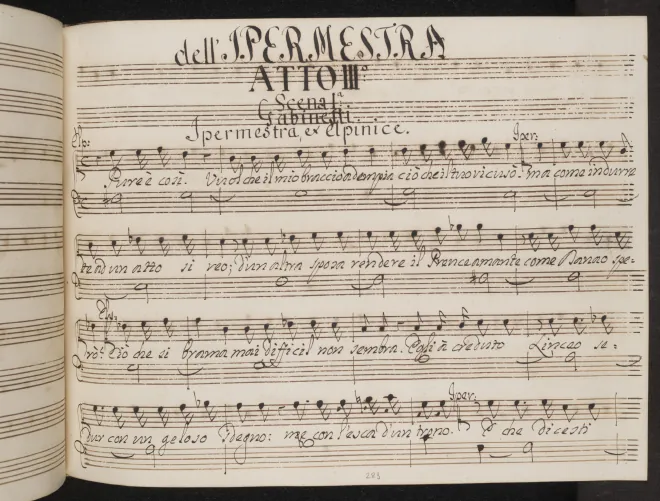 dell' IPERMESTRA
ATTO III.º
Scena I.ª
Gabinetti.
Ipermestra, et elpinice.
Elp: Iper:
Pure è così. Vuol che il mio braccio adempia ciò che il tuo ricusò. Ma come indurre
te ad un atto si reo; d'un altra sposa rendere il Prence amante come Danao spe-
Elp:
rò? Ciò che si brama mai difficil non sembra. Egli à creduto Linceo se-
Iper:
dur con un geloso sdegno: me con l'esca d'un trono. E che dicesti
203